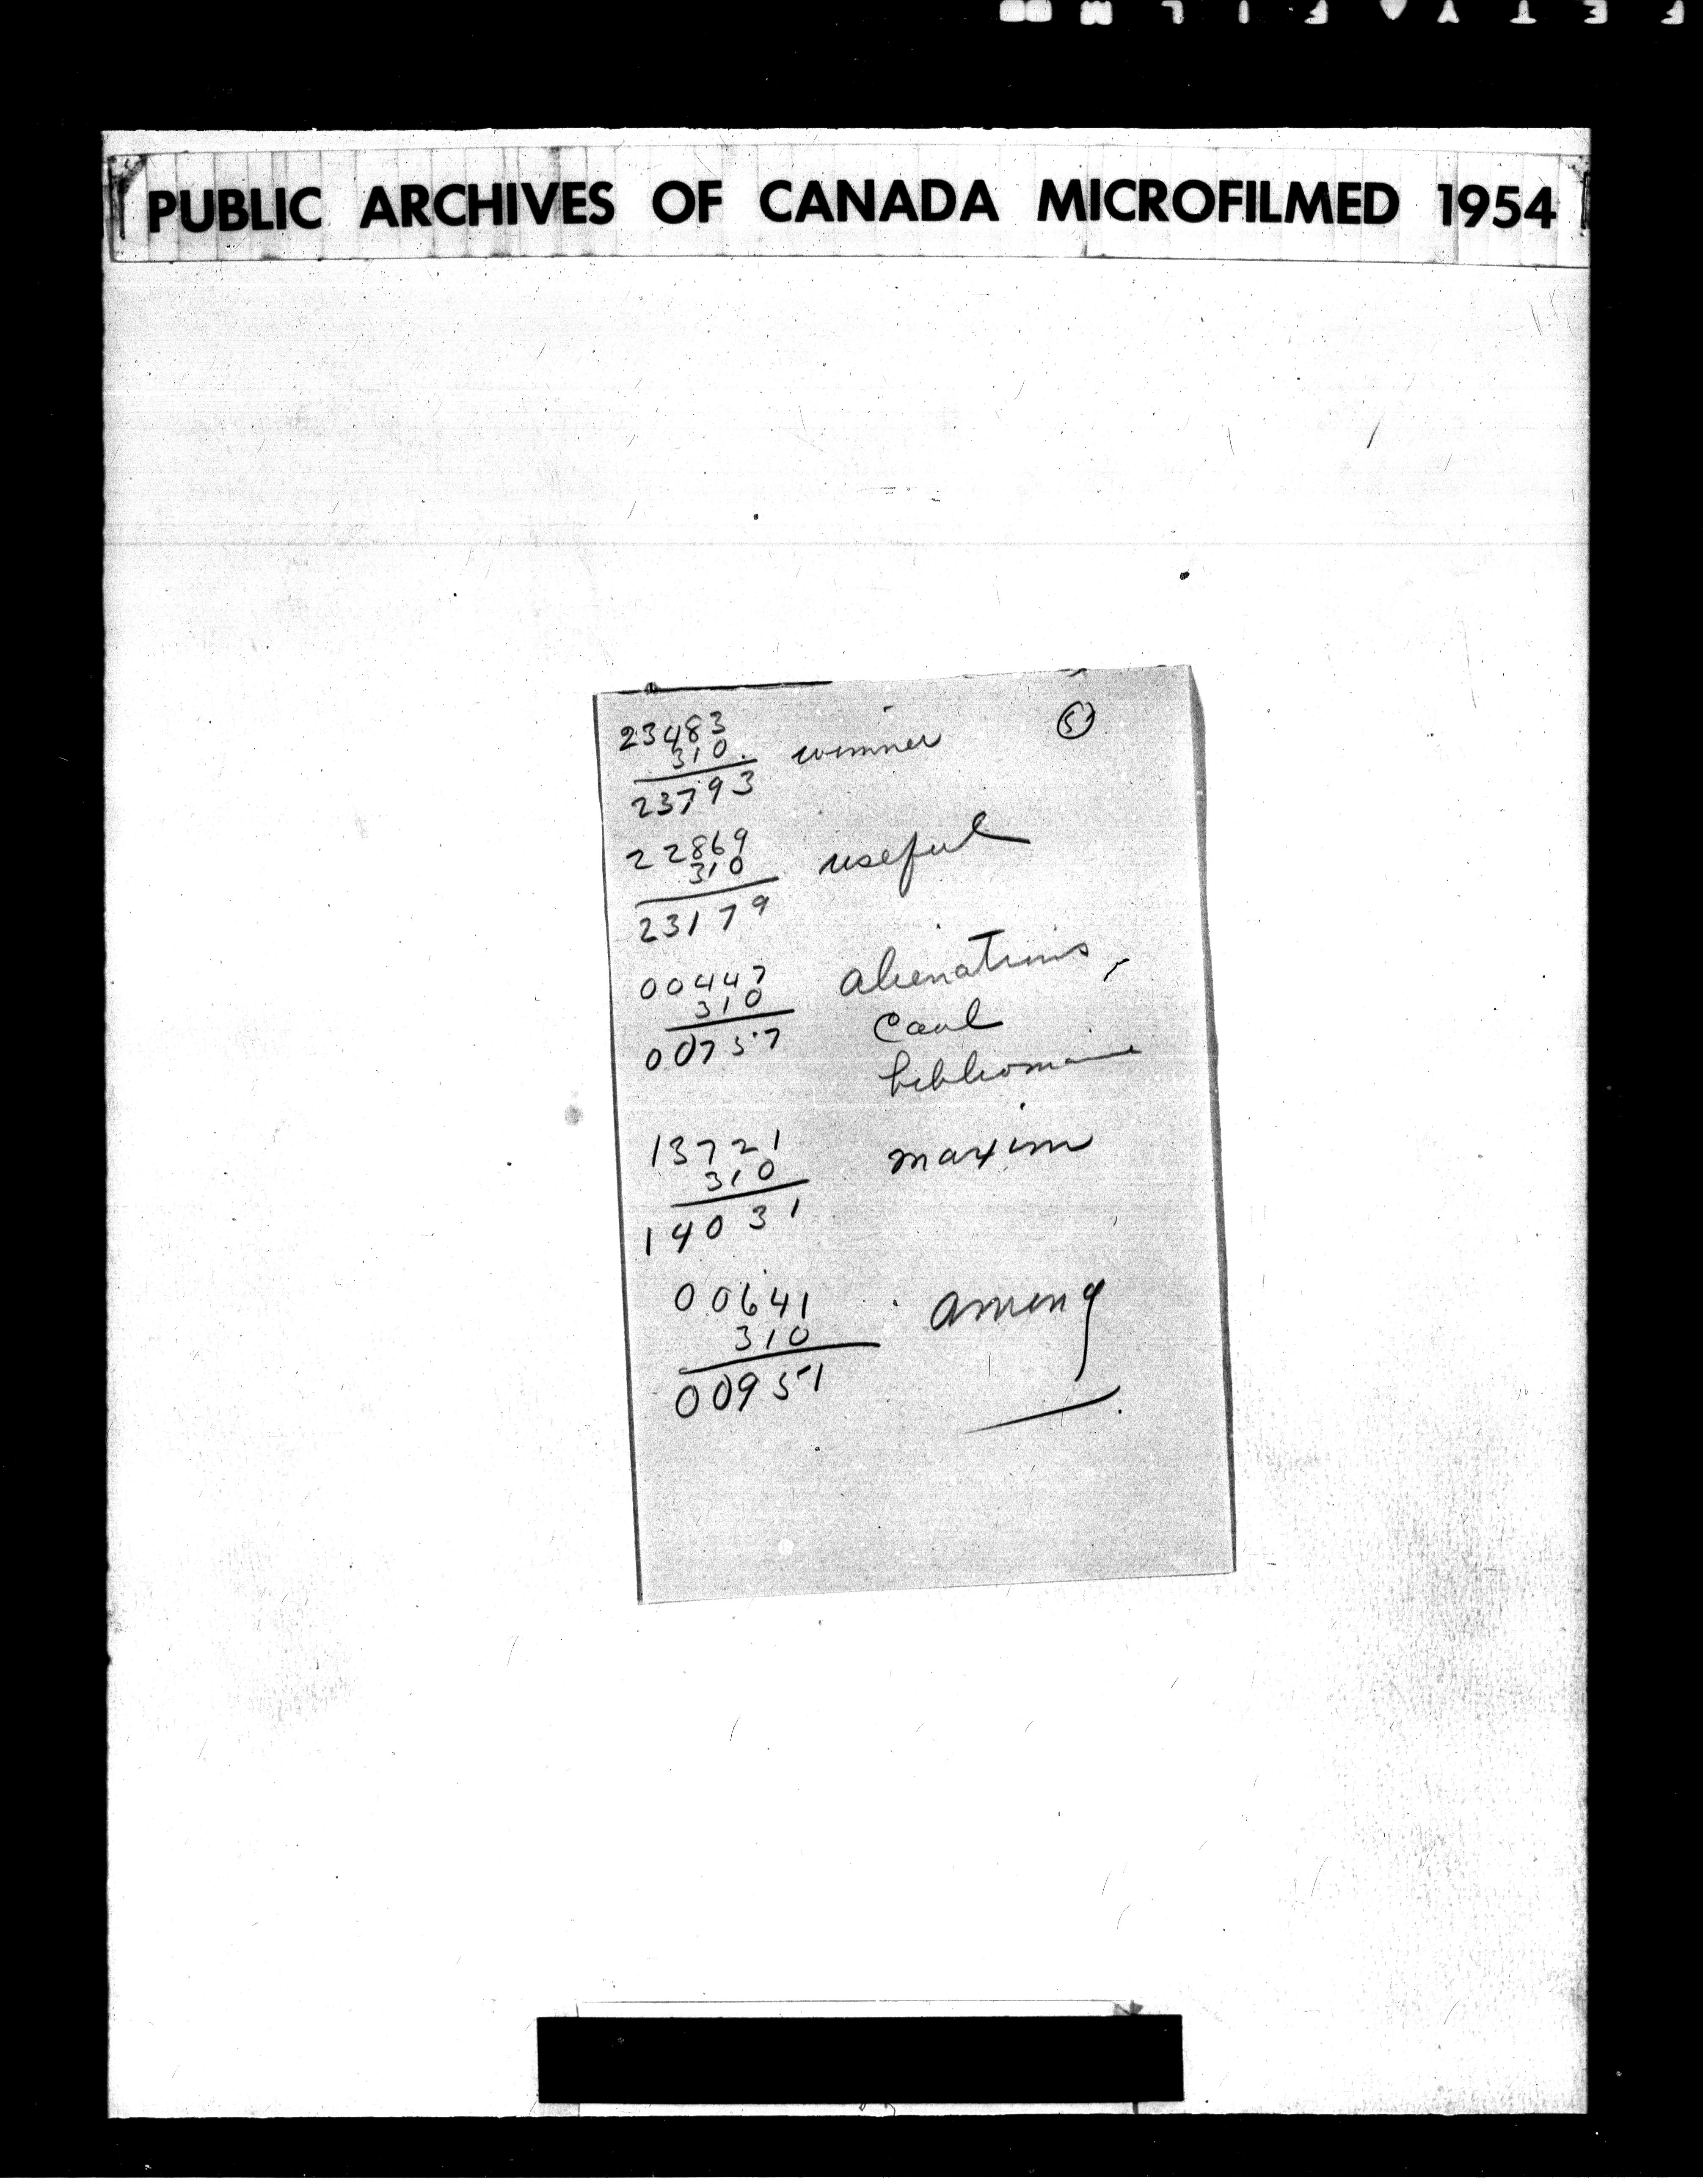 PUBLIC ARCHIVES OF CANADA MICROFILMED 1954
5
23483
310 winner
23793
22869
310 useful
23179
00447 alienations,
310
00757
13721 maxim
310
14031
00641 among
310
00951